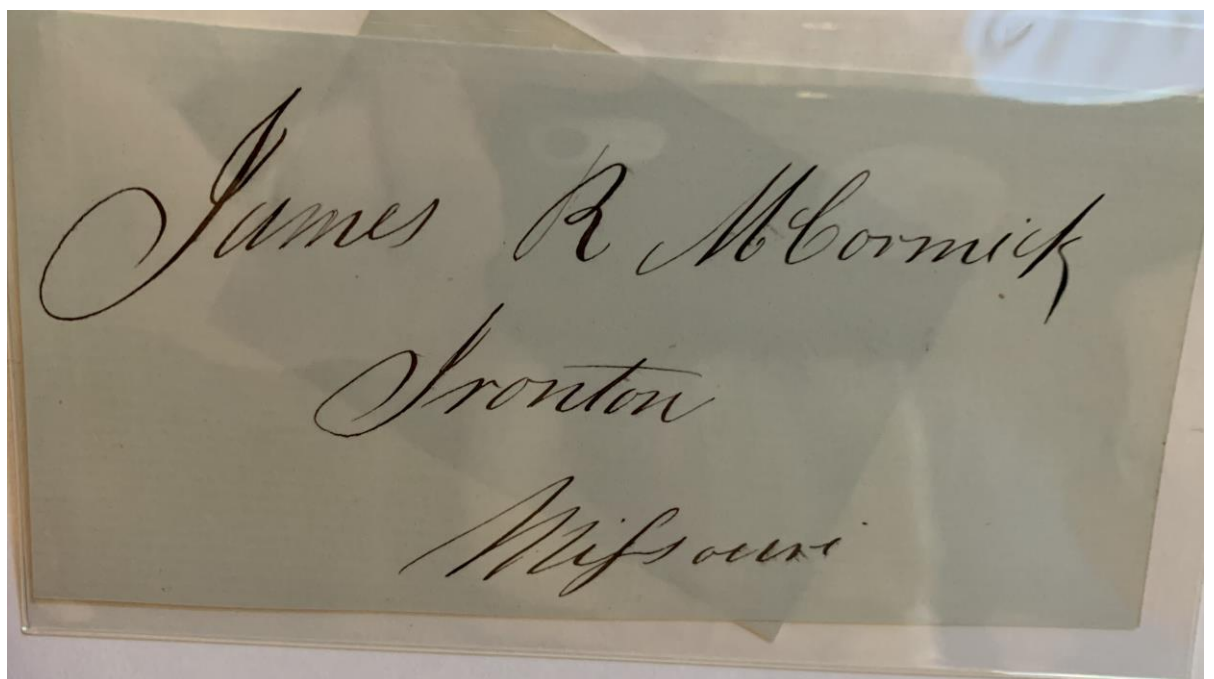 James R McCormick
Ironton
Missouri